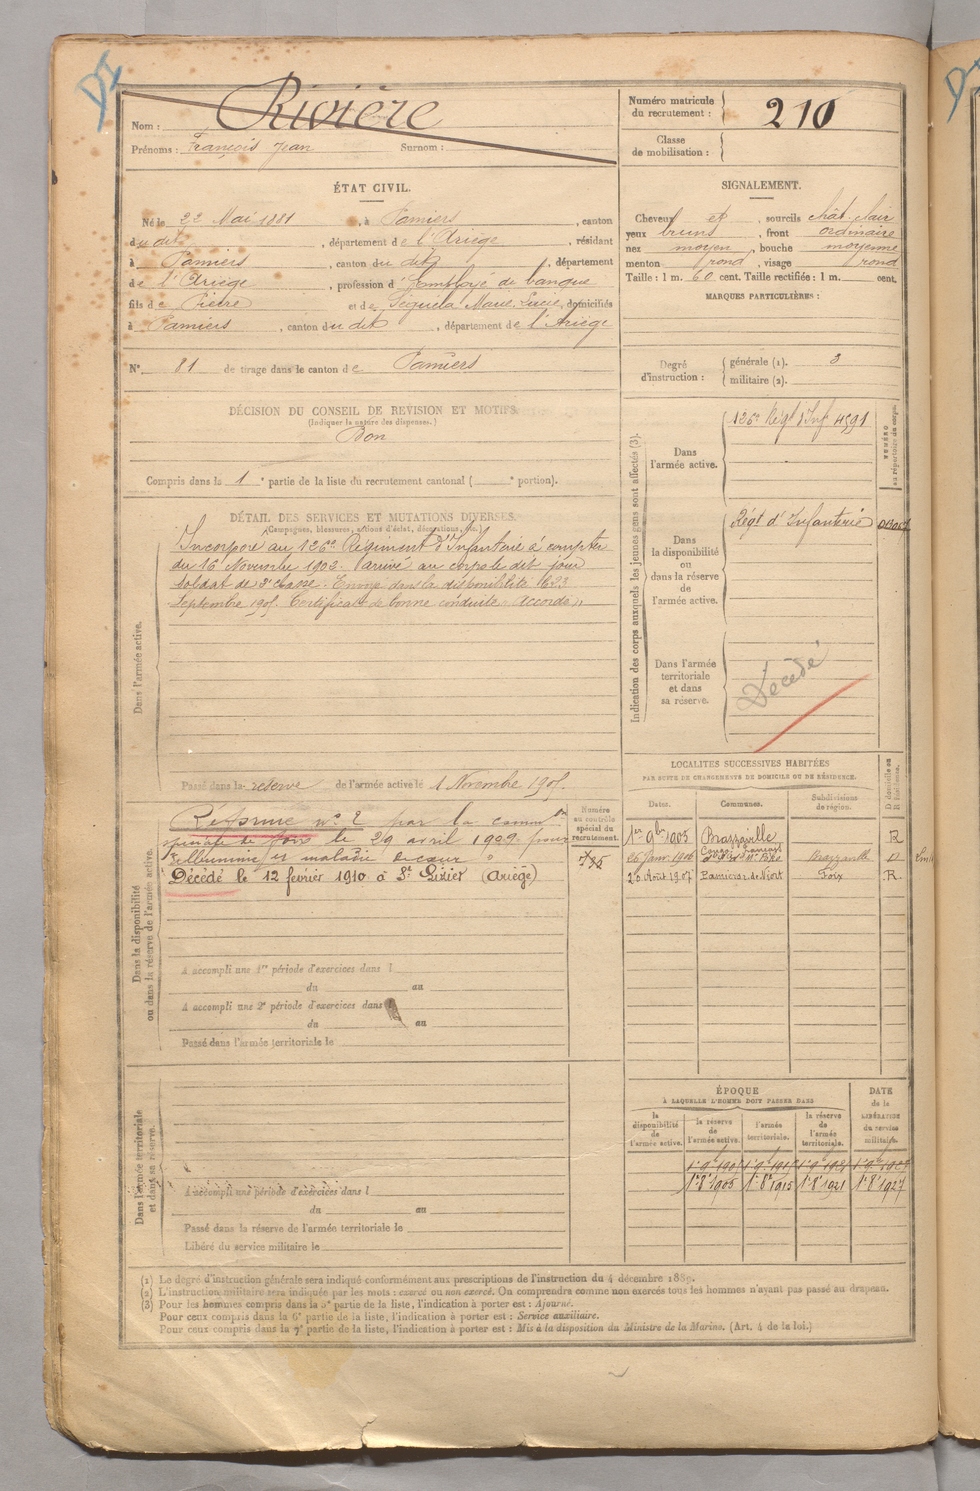 Nom : Rivière
Prénoms : François Jean Surnom :
Numéro matricule
du recrutement : 210
Classe
de mobilisation :
ÉTAT CIVIL.
Né le 22 Mai 1881, à Pamiers, canton
du dit, département de l'Ariège, résidant
à Pamiers, canton du dit, département
de l'Ariège, profession d'Employé de banque
fils de Pierre et de Séguéla Marie Lucie, domiciliés
à Pamiers, canton du dit, département de l'Ariège
N° 81 de tirage dans le canton de Pamiers
SIGNALEMENT.
Cheveux et, sourcils chât. clair
yeux bruns, front ordinaire
nez moyen, bouche moyenne
menton rond, visage rond
Taille : 1 m. 60 cent. Taille rectifiée : 1 m. cent.
MARQUES PARTICULIÈRES :
Degré
d'instruction :
générale (1). 3
militaire (2).
DÉCISION DU CONSEIL DE REVISION ET MOTIFS.
(Indiquer la nature des dispenses.)
Bon
Compris dans la 1e partie de la liste du recrutement cantonal ( e portion).
DÉTAIL DES SERVICES ET MUTATIONS DIVERSES.
(Campagnes, blessures, actions d'éclat, décorations, etc.)
Dans l'armée active.
Incorporé au 126e Régiment d'Infanterie à compter
du 16 Novembre 1902. Arrivé au corps le dit jour
soldat de 2e classe. Envoyé dans la disponibilité le 23
Septembre 1905. Certificat de bonne conduite « Accordé ».
Passé dans la réserve de l'armée active le 1 Novembre 1905.
Indication des corps auxquels les jeunes gens sont affectés (3).
NUMÉRO
au répertoire du corps.
Dans
l'armée active.
126e Régt d'Inf 4591
Dans
la disponibilité
ou
dans la réserve
de
l'armée active.
Régt d'Infanterie
Dans l'armée
territoriale
et dans
sa réserve.
Décédé
Dans la disponibilité
ou dans la réserve de l'armée active.
Numéro
au contrôle
spécial du
recrutement.
Réforme n° 2 par la common
spéciale de Foix le 29 avril 1909 pour
albuminie et maladie du cœur
Décédé le 12 février 1910 à St Lizier (Ariège)
A accompli une 1re période d'exercices dans l
du au
A accompli une 2e période d'exercices dans l
du au
Passé dans l'armée territoriale le
LOCALITÉS SUCCESSIVES HABITÉES
PAR SUITE DE CHANGEMENTS DE DOMICILE OU DE RÉSIDENCE.
Dates. Communes. Subdivisions
de région. D domicile ou
R résidence.
1er 9bre 1905 Brazzaville R
Congo français
26 Janv. 1906 Brazzaville D
20 Août 1907 Pamiers Foix R
Dans l'armée territoriale
et dans sa réserve.
A accompli une période d'exercices dans l
du au
Passé dans la réserve de l'armée territoriale le
Libéré du service militaire le
ÉPOQUE
À LAQUELLE L'HOMME DOIT PASSER DANS
DATE
de la
LIBÉRATION
du service
militaire.
la
disponibilité
de
l'armée active.
la réserve
de
l'armée active.
l'armée
territoriale.
la réserve
de
l'armée
territoriale.
1er 8bre 1905 1er 8bre 1915 1er 8bre 1921 1er 8bre 1927
(1) Le degré d'instruction générale sera indiqué conformément aux prescriptions de l'instruction du 4 décembre 1889.
(2) L'instruction militaire sera indiquée par les mots : exercé ou non exercé. On comprendra comme non exercés tous les hommes n'ayant pas passé au drapeau.
(3) Pour les hommes compris dans la 5e partie de la liste, l'indication à porter est : Ajourné.
Pour ceux compris dans la 6e partie de la liste, l'indication à porter est : Service auxiliaire.
Pour ceux compris dans la 7e partie de la liste, l'indication à porter est : Mis à la disposition du Ministre de la Marine. (Art. 4 de la loi.)